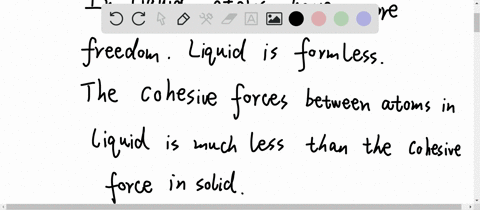 In liquid atoms have more
freedom. Liquid is formless.
The cohesive forces between atoms in
liquid is much less than the cohesive
force in solid.